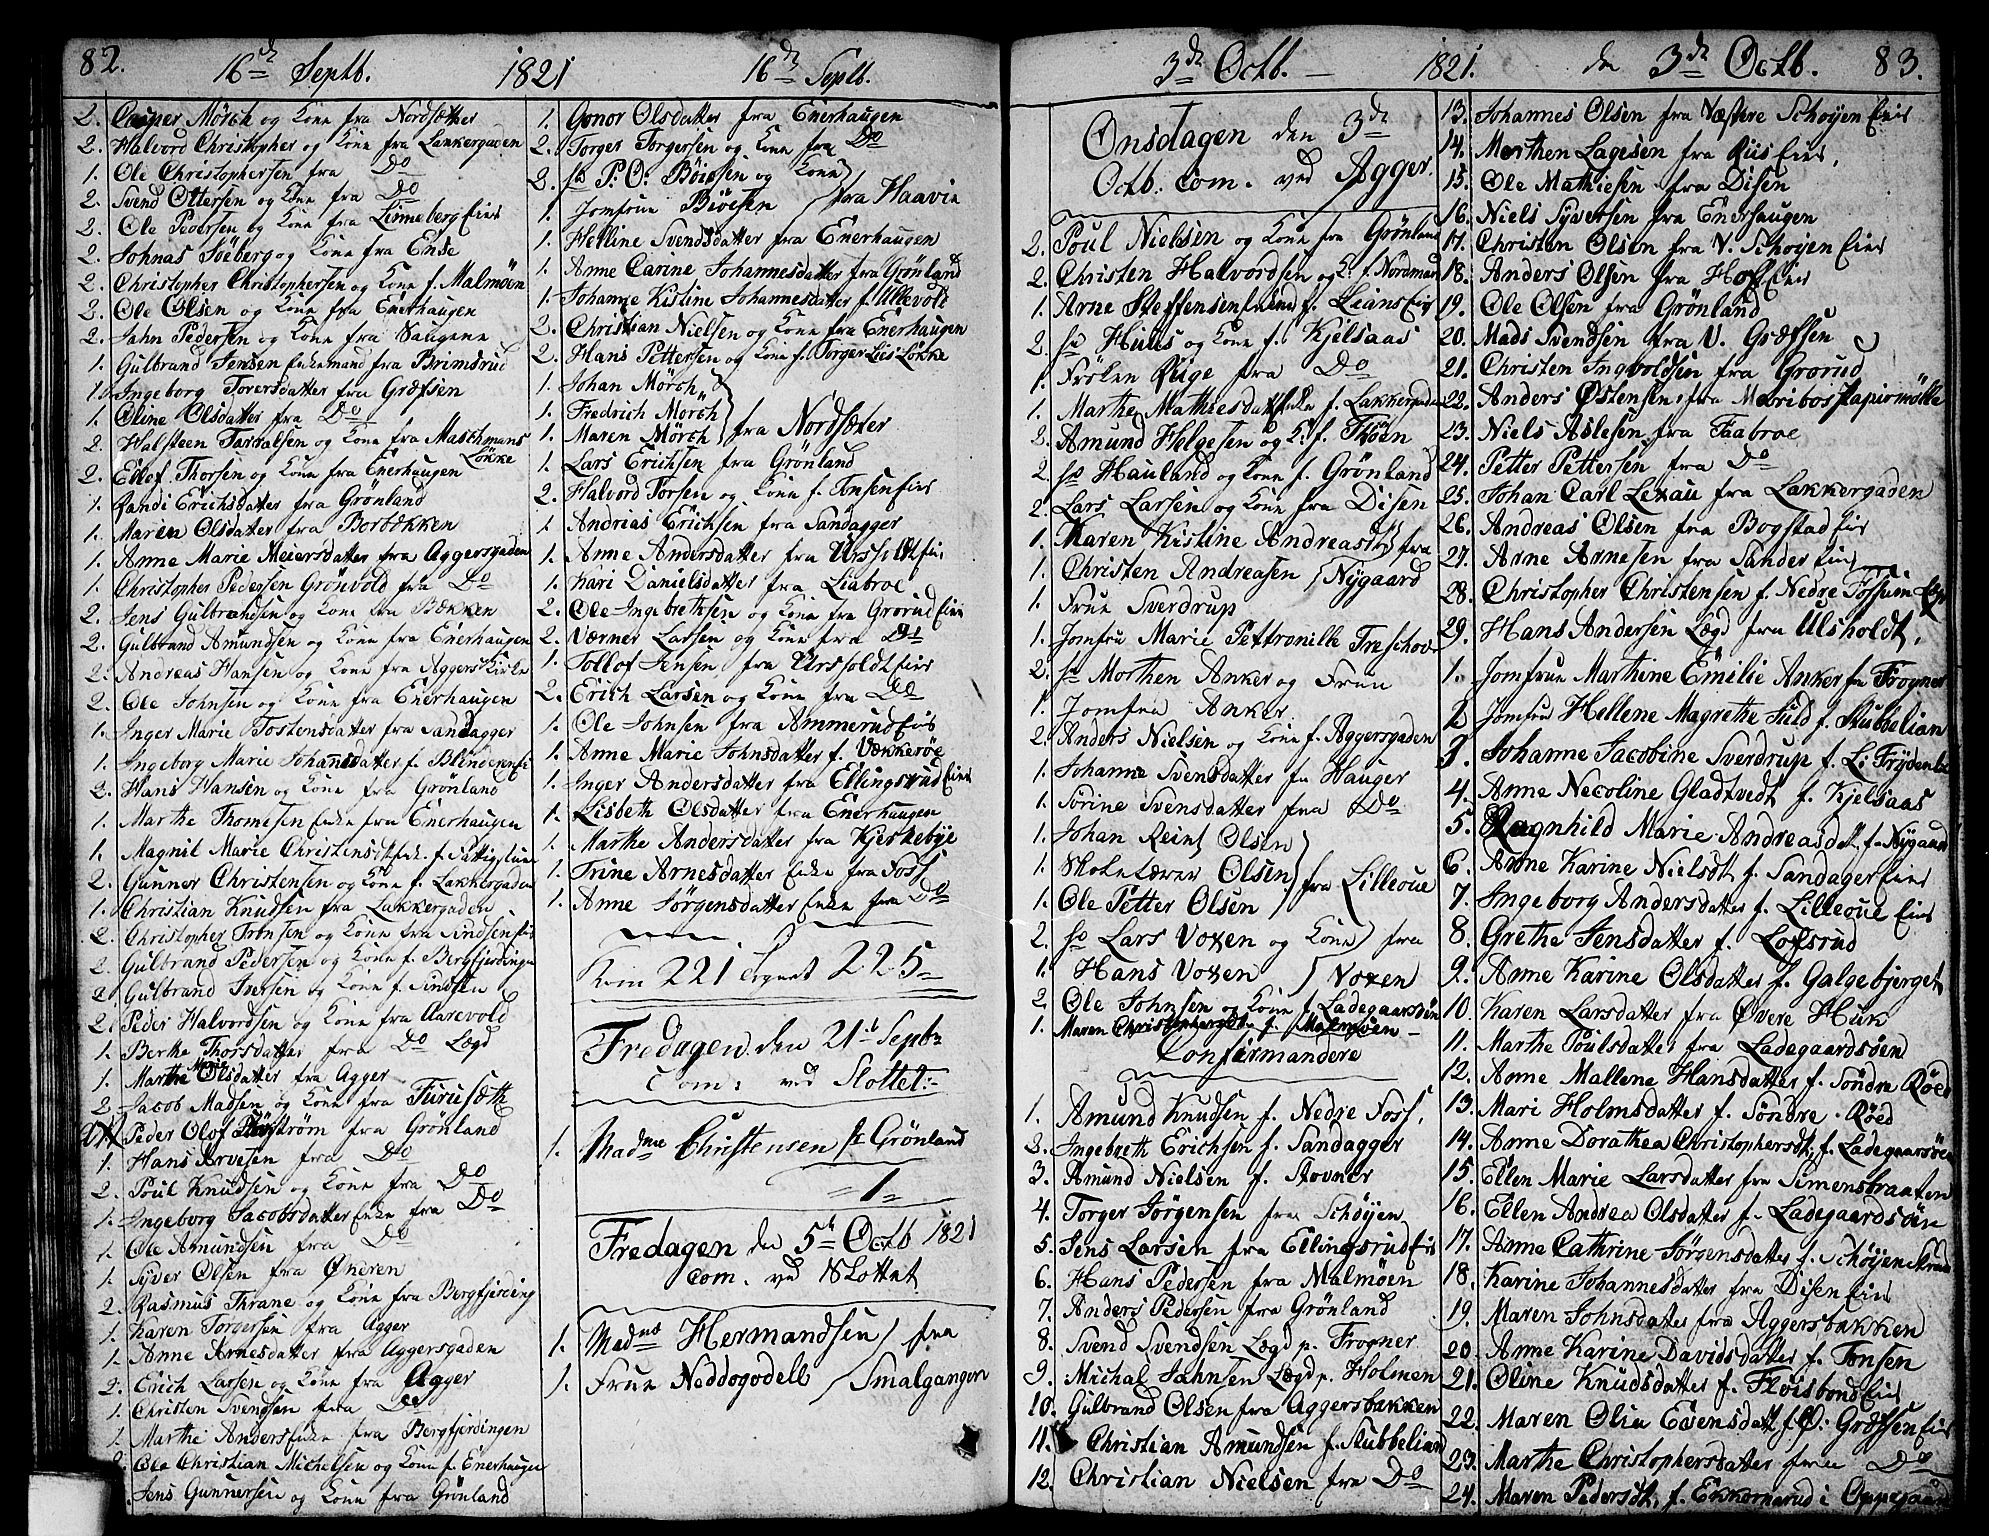 82. 16de Septb. 1821 16de Septb.
2. Casper Mörch og Kone fra Nordsæther
2. Halvord Christopher og Kone fra Lakkergaden
1. Ole Christophersen fra Do
2. Svend Ottersen og Kone fra Do
2. Ole Pedersen og Kone fra Linneberg Eier
2. Johnas Söeberg og Kone fra Ense
2. Christopher Christophersen og Kone f. Malmöen
2. Ole Olsen og Kone fra Enerhaugen
2. Jahn Pedersen og Kone fra Saugene
1. Gulbrand Jensen Enkemand fra Brimsrud
1. Ingeborg Torersdatter fra Græfsen
1. Oline Olsdatter fra Do
2. Halsteen Tarralsen og Kone fra Maschmans Lökke
2. Ellef Thorsen og Kone fra Enerhaugen
1. Randi Erichsdatter fra Grönland
1. Maren Olsdatter fra Borbækken
1. Anne Marie Meiersdatter fra Aggersgaden
1. Christopher Pedersen Grönvold fra Do
2. Jens Gulbrandsen og Kone fra Bækken
2. Gulbrand Amundsen og Kone fra Enerhaugen
2. Andreas Hansen og Kone fra Aggers Kirke
2. Ole Johnsen og Kone fra Enerhaugen
1. Inger Marie Tostensdatter fra Sandagger
1. Ingeborg Marie Johansdatter f. Blinderen Ei
2. Hans Hansen og Kone fra Grönland
1. Marthe Thomesen Enke fra Enerhaugen
1. Magnil Marie Christensdt Enk. f.
2. Gunner Christensen og Kone f. Lakkergaden
1. Christian Knudsen fra Lakkergaden
2. Christopher Trönsen og Kone fra
2. Gulbrand Pedersen og Kone f. Bergfjerdingen
2. Gulbrand Iversen og Kone f.
2. Peder Halvordsen og Kone fra Aarevold
1. Berthe Thorsdatter fra Do Lægd
1. Marthe Marie Olsdatter fra Agger
2. Jacob Madsen og Kone fra Furusæth
Peder Olof fra Grönland
1. Hans Arvesen fra Do
2. Poul Knudsen og Kone fra Do
1. Ingeborg Jacobsdatter Enke fra Do
1. Ole Amundsen fra Do
1. Syver Olsen fra Öneren
2. Rasmus Thrane og Kone fra Bergfjerding
1. Karen Torgersen fra Agger
1. Anne Arnesdatter fra Aggersgaden
2. Erich Larsen og Kone fra Agger
1. Christen Svendsen fra Do
1. Marthe Anders Enke fra Bergfjerdingen
2. Ole Christian Michelsen og Kone f. Enerhaugen
Jens Gunnersen og Kone fra Grönland
1. Gonor Olsdatter fra Enerhaugen
2. Torger Torgersen og Kone fra Do
2. Hr P. O. Böiesen og Kone
1. Jomfrue Böiesen fra Haavie
1. Helline Svendsdatter fra Enerhaugen
1. Anne Carine Johannesdatter fra Grönland
1. Johanne Kistine Johannesdatter f. Ullevold
2. Christian Nielsen og Kone fra Enerhaugen
2. Hans Pettersen og Kone f. Torger Lies Lökke
1. Johan Mörch
1. Fredrich Mörch
1. Maren Mörch fra Nordsæter
1. Lars Erichsen fra Grönland
2. Halvord Torsen og Kone f. Tonsen Eier
1. Andrias Erichsen fra Sandagger
1. Anne Andersdatter fra Ursholdt Eier
1. Kari Danielsdatter fra Liabroe
2. Ole Ingebrethsen og Kone fra Grorud Eier
2. Værner Larsen og Kone fra Do
1. Tollof Jensen fra Ursholdt Eier
2. Erich Larsen og Kone fra Do
1. Ole Johnsen fra Ammerud Eie
1. Anne Marie Johnsdatter f. Vækkeröe
1. Inger Andersdatter fra Ellingsrud Eier
1. Lisbeth Olsdatter fra Enerhaugen
1. Marthe Andersdatter fra Kjerkebye
1. Trine Arnesdatter Enke fra Foss
1. Anne Jörgensdatter Enke fra Do
Kom 221 225
Fredagen den 21de Septb:
Com: ved Slottet:
1. Madme Christensen f. Grönland
1
Fredagen den 5te Octb 1821
Com. ved Slottet
1. Madme Hermandsen fra
1. Frue Smalgangen
3de Octb. 1821. den 3de Octb. 83.
Onsdagen den 3de
Octb. Com. ved Agger.
2. Poul Nielsen og Kone fra Grönland
2. Christen Halvordsen og K. f. Nordmand
1. Arne Steffensen f. Lians Eie
2. Hr Huus og Kone f. Kjelsaas
1. Fröken Rüge fra Do
1. Marthe Mathiesdatt Enke f. Lakkergaden
2. Amund Helgesen og K. f. Thöen
2. Hr Hauland og Kone f. Grönland
2. Lars Larsen og Kone fra Disen
1. Maren Kistine Andreasd fra
1. Christen Andreasen Nygaard
1. Frue Sverdrup
1. Jomfru Marie Pettronille Treschov
2. Hr Morthen Anker og Frue
1. Jomfru Anker
2. Anders Nielsen og Kone f. Aggersgaden
1. Johanne Svensdatter fra Hauger
1. Sörine Svensdatter fra Do
1. Johan Reint Olsen
1. Skolelærer Olsen fra Lilleoue
1. Ole Petter Olsen
2. Hr Lars Voxen og Kone fra
1. Hans Voxen Voxen
2. Ole Johnsen og Kone f. Ladegaardsöen
1. Maren Christophersdt f. Malmöen
Confirmandere
1. Amund Knudsen f. Nedre Foss.
2. Ingebreth Erichsen f. Sandagger
3. Amund Nielsen f. Stovner
4. Torger Jörgensen fra Schöyen
5. Jens Larsen fra Ellingsrud Eie
6. Hans Pedersen fra Malmöen
7. Anders Pedersen fra Grönland
8. Svend Svendsen Lægd p. Frogner
9. Michal Jahnsen Lægd p. Holmen
10. Gulbrand Olsen fra Aggersbakken
11. Christian Amundsen f. Stubbelian
12. Christian Nielsen fra Do
13. Johannes Olsen fra Væstere Schöyen Eier
14. Morthen Lagesen fra Riis Eier.
15. Ole Mathiesen fra Disen
16. Niels Syversen fra Enerhaugen
17. Christen Olsen fra V. Schöyen Eier
18. Anders Olsen fra Hoff Eier
19. Ole Olsen fra Grönland
20. Mads Svendsen fra V. Græfsen
21. Christen Ingvoldsen fra Grorud
22. Anders Östensen fra Maribos Papiermölle
23. Niels Aslesen fra Faabroe
24. Petter Pettersen fra Do
25. Johan Carl Lexau fra Lakkergaden
26. Andreas Olsen fra Bogstad Eier
27. Arne Arnesen fra Sander Eier
28. Christopher Christensen f. Nedre Fossum Eier
29. Hans Andersen Lægd fra Ulsholdt.
1. Jomfrue Marthine Emilie Anker fra Frogner
2. Jomfru Hellene Magrethe Juld f. Stubbelian
3. Johanne Jacobine Sverdrup f. L. Frydenlu
4. Anne Necoline Gladtvedt f. Kjelsaas
5. Ragnhild Marie Andreasdt. f. Nygaard
6. Anne Karine Nielsdt f. Sandager Eier
7. Ingeborg Andersdatter f. Lilleoue Eier
8. Grethe Jensdatter f. Lofsrud
9. Anne Karine Olsdatter f. Galgebjerget
10. Karen Larsdatter fra Övere Huk
11. Marthe Poulsdatter fra Ladegaardsöen
12. Anne Mallene Hansdatter f. Söndre Röed
13. Mari Holmsdatter f. Söndre Röed
14. Anne Dorathea Christophersdt. f. Ladegaarsöen
15. Ellen Marie Larsdatter fra Simensbraaten
16. Ellen Andrea Olsdatter f. Ladegaardsöen
17. Anne Cathrine Jörgensdatter f. Schöyen
18. Karine Johannesdatter fra Disen Eier
19. Maren Johnsdatter fra Aggersbakken
20. Anne Karine Davidsdatter f. Tonsen
21. Oline Knudsdatter f. Flöisbond Eier
22. Maren Olia Evensdatt f. Ö: Græfsen Eier
23. Marthe Christophersdatter fra Do
24. Maren Pedersdt. f. Ekkornerud i Oppegaard